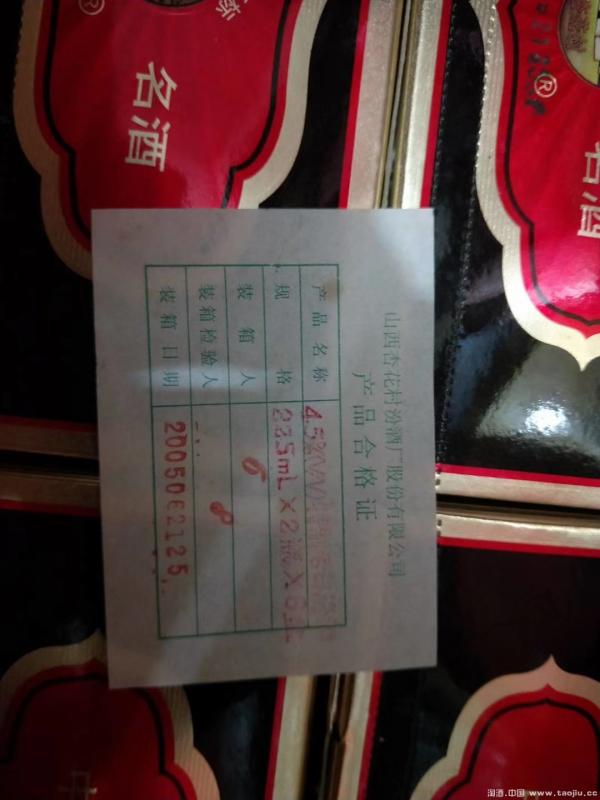 名酒
®
名酒
®
山西杏花村汾酒厂股份有限公司
产品合格证
产品名称
规格 225mL×2瓶×6
装箱人 6
装箱检验人 8
装箱日期 2005062125
淘酒.中国 www.taojiu.cc